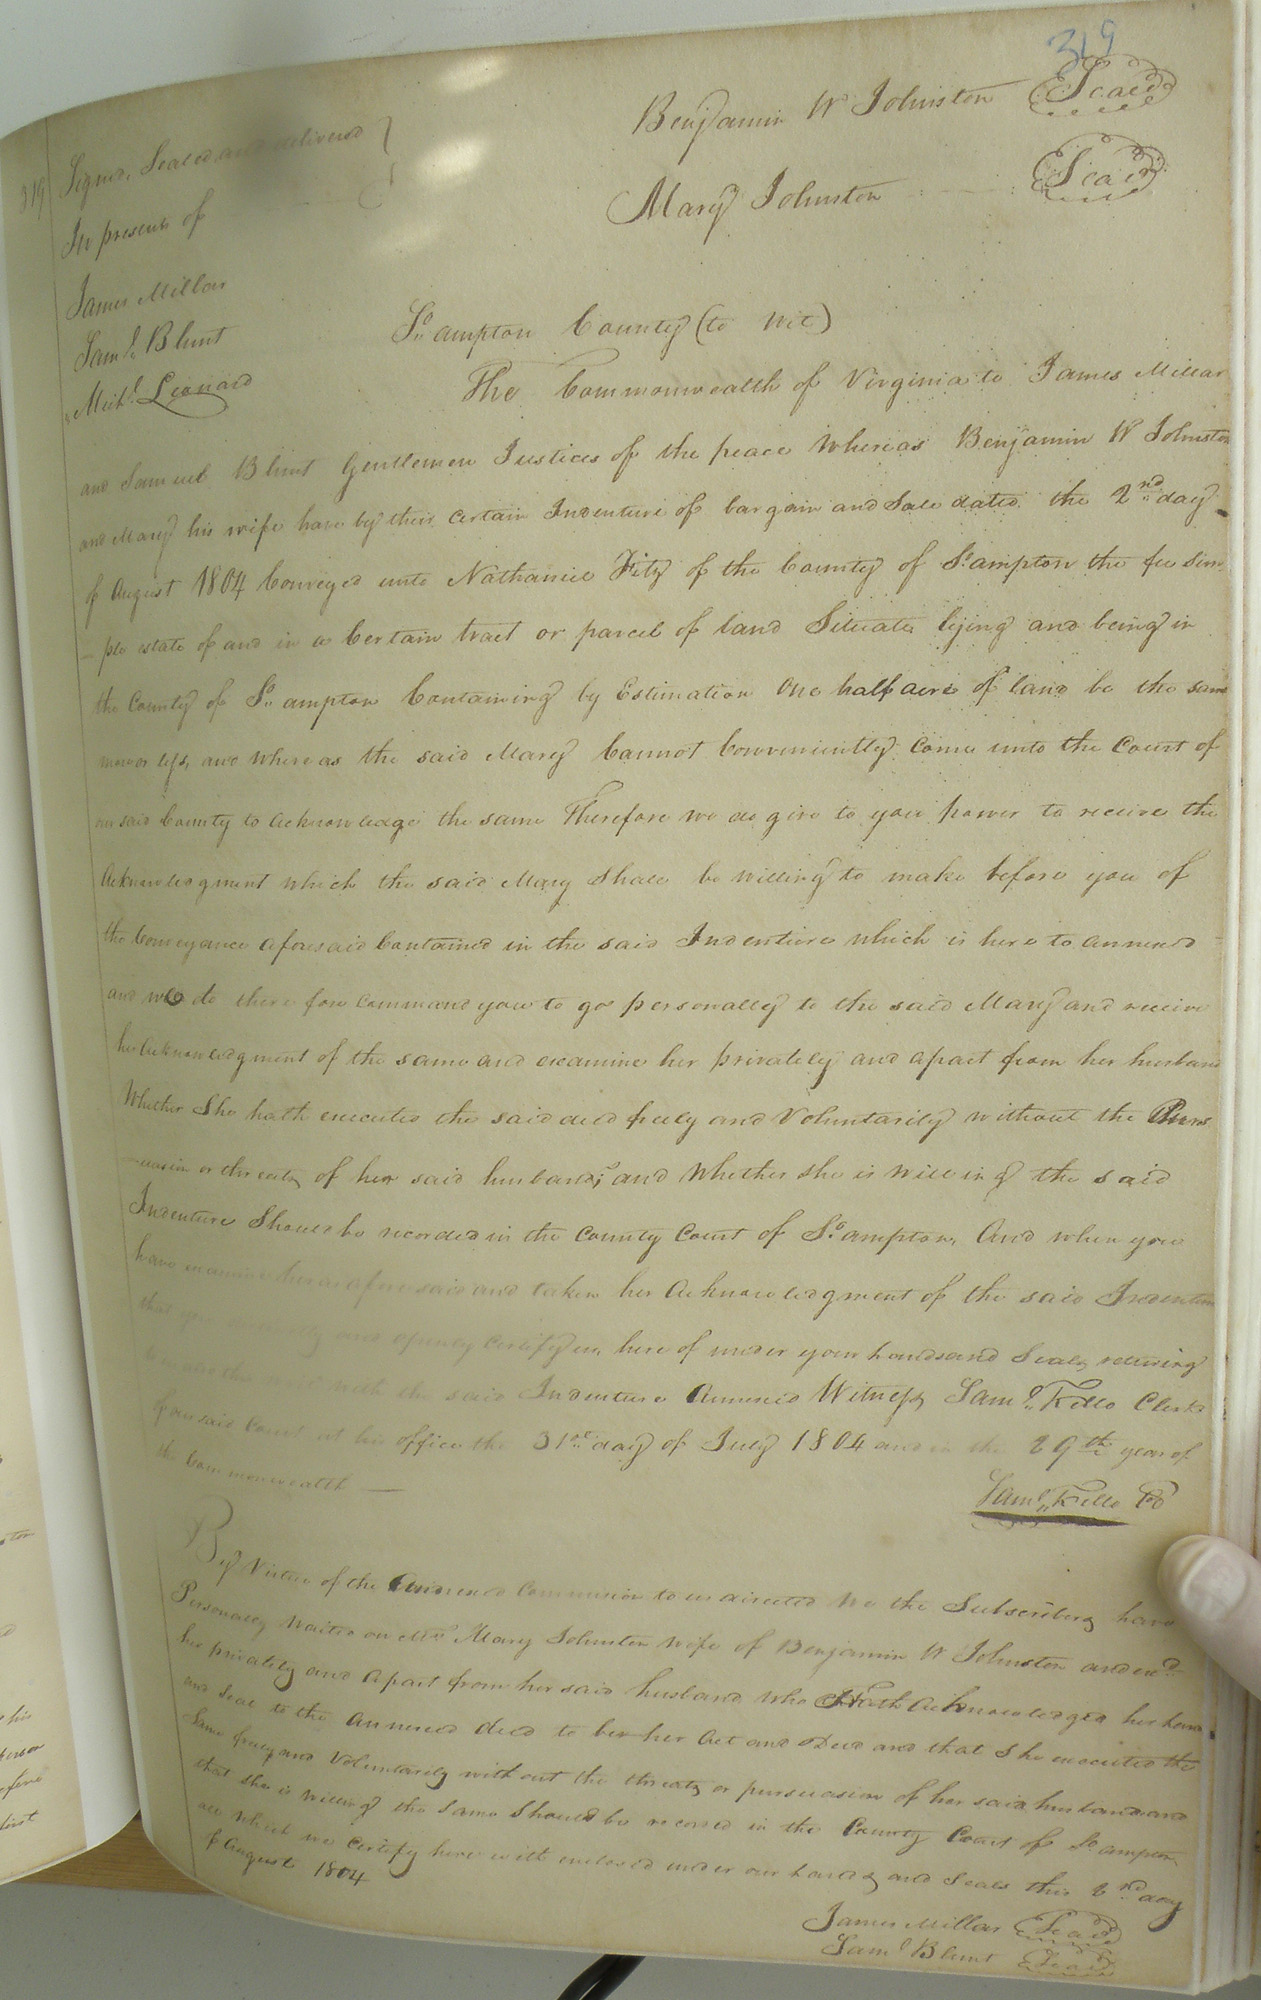 319
Benjamin W Johnston Seal
319 Signd, Sealed and delivered
Mary Johnston Seal
In presents of
James Millar
Saml. Blunt
Mich. Leonard
So. ampton County (to wit)
The Commonwealth of Virginia to James Millar
and Samuel Blunt Gentlemen Justices of the peace Whereas Benjamin W Johnston
and Mary his wife have by their certain Indenture of bargain and Sale dated the 2nd day
of August 1804 Conveyed unto Nathaniel of the County of So. ampton the fee Sim
-ple estate of and in a Certain tract or parcel of land Situate lying and being in
the County of So. ampton Containing by Estimation One half acre of land be the same
more or less, and whereas the said Mary Cannot Conveniently Come unto the Court of
our said County to acknowledge the same Therefore we do give to you power to receive the
Acknowledgment which the said Mary Shall be willing to make before you of
the Conveyance aforesaid Contained in the said Indenture which is here to annexed
and we do there fore command you to go personally to the said Mary and receive
her Acknowledgment of the same and examine her privately and apart from her husband
Whether She hath executed the said deed freely and Voluntarily without the Purs
-uasion or threats of her said husband; and Whether she is willing the said
Indenture Should be recorded in the County Court of So. ampton, And when you
have examined her as aforesaid and taken her Acknowledgment of the said Indenture
that you and openly Certify us, here of under your hands and Seals returning
with the said Indenture Annexed Witness Saml. Kello Clerk
of our said Court at his office the 31st day of July 1804 and in the 29th year of
the Commonwealth —
Saml. Kello
By Virtue of the Annexed Commission to us directed We the Subscribers have
Personally Waited on Mrs Mary Johnston wife of Benjamin W Johnston and exd.
her privately and apart from her said husband who Hath Acknowledged her hand
and Seal to the Annexed deed to be her Act and Deed and that She executed the
Same freely and Voluntarily without the threats or pursuasion of her said husband and
that she is willing the Same Should be recorded in the County Court of So. ampton
all which we Certify here with enclosed under our hands and Seals this 2nd day
of August 1804
James Millar Seal
Saml Blunt Seal